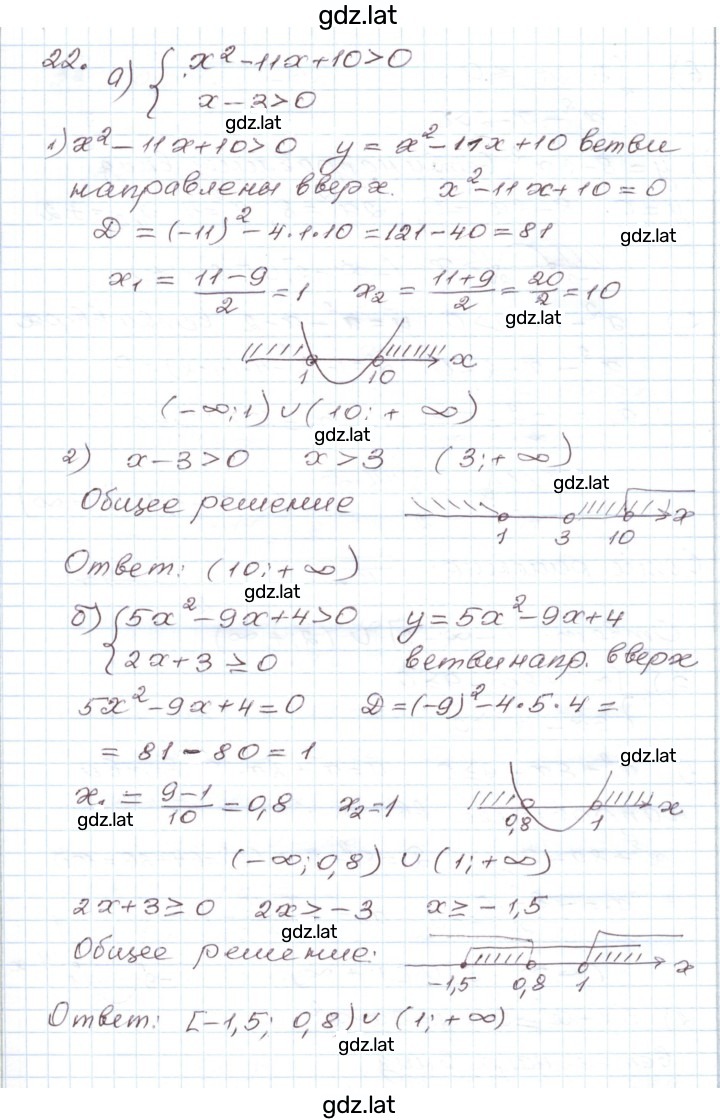 gdz.lat
22. а) { x² - 11x + 10 > 0
x - 3 > 0
gdz.lat
1) x² - 11x + 10 > 0 y = x² - 11x + 10 ветви
направлены вверх. x² - 11x + 10 = 0
D = (-11)² - 4·1·10 = 121 - 40 = 81
gdz.lat
x₁ = (11-9)/2 = 1 x₂ = (11+9)/2 = 20/2 = 10
gdz.lat
1 10 x
(-∞; 1) ∪ (10; + ∞)
gdz.lat
2) x - 3 > 0 x > 3 (3; + ∞)
gdz.lat
Общее решение
1 3 10 x
Ответ: (10; + ∞)
gdz.lat
б) { 5x² - 9x + 4 > 0 y = 5x² - 9x + 4
2x + 3 ≥ 0 ветви напр. вверх
5x² - 9x + 4 = 0 D = (-9)² - 4·5·4 =
= 81 - 80 = 1
gdz.lat
x₁ = (9-1)/10 = 0,8 x₂ = 1
gdz.lat
0,8 1 x
(-∞; 0,8) ∪ (1; +∞)
2x + 3 ≥ 0 2x ≥ -3 x ≥ -1,5
gdz.lat
Общее решение:
-1,5 0,8 1 x
Ответ: [-1,5; 0,8) ∪ (1; +∞)
gdz.lat
gdz.lat